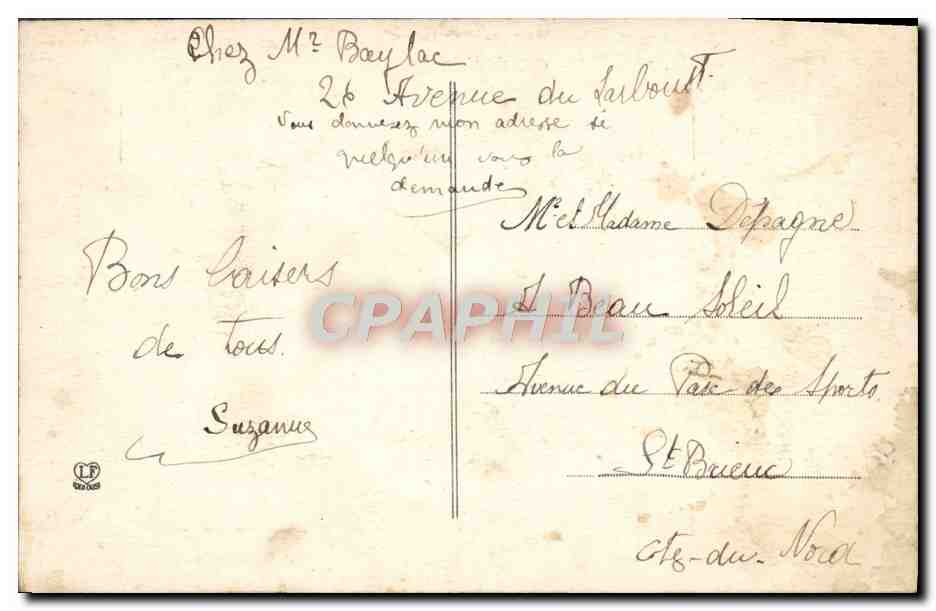 Chez Mr Baylac
26 Avenue du Larboust
Vous donnerez mon adresse si
quelqu'un vous la
demande
Bons baisers
de tous.
Suzanne
Mr et Madame Depagne
A Beau Soleil
Avenue du Parc des Sports
St Brieuc
Côtes-du-Nord
CPAPHIL
LF